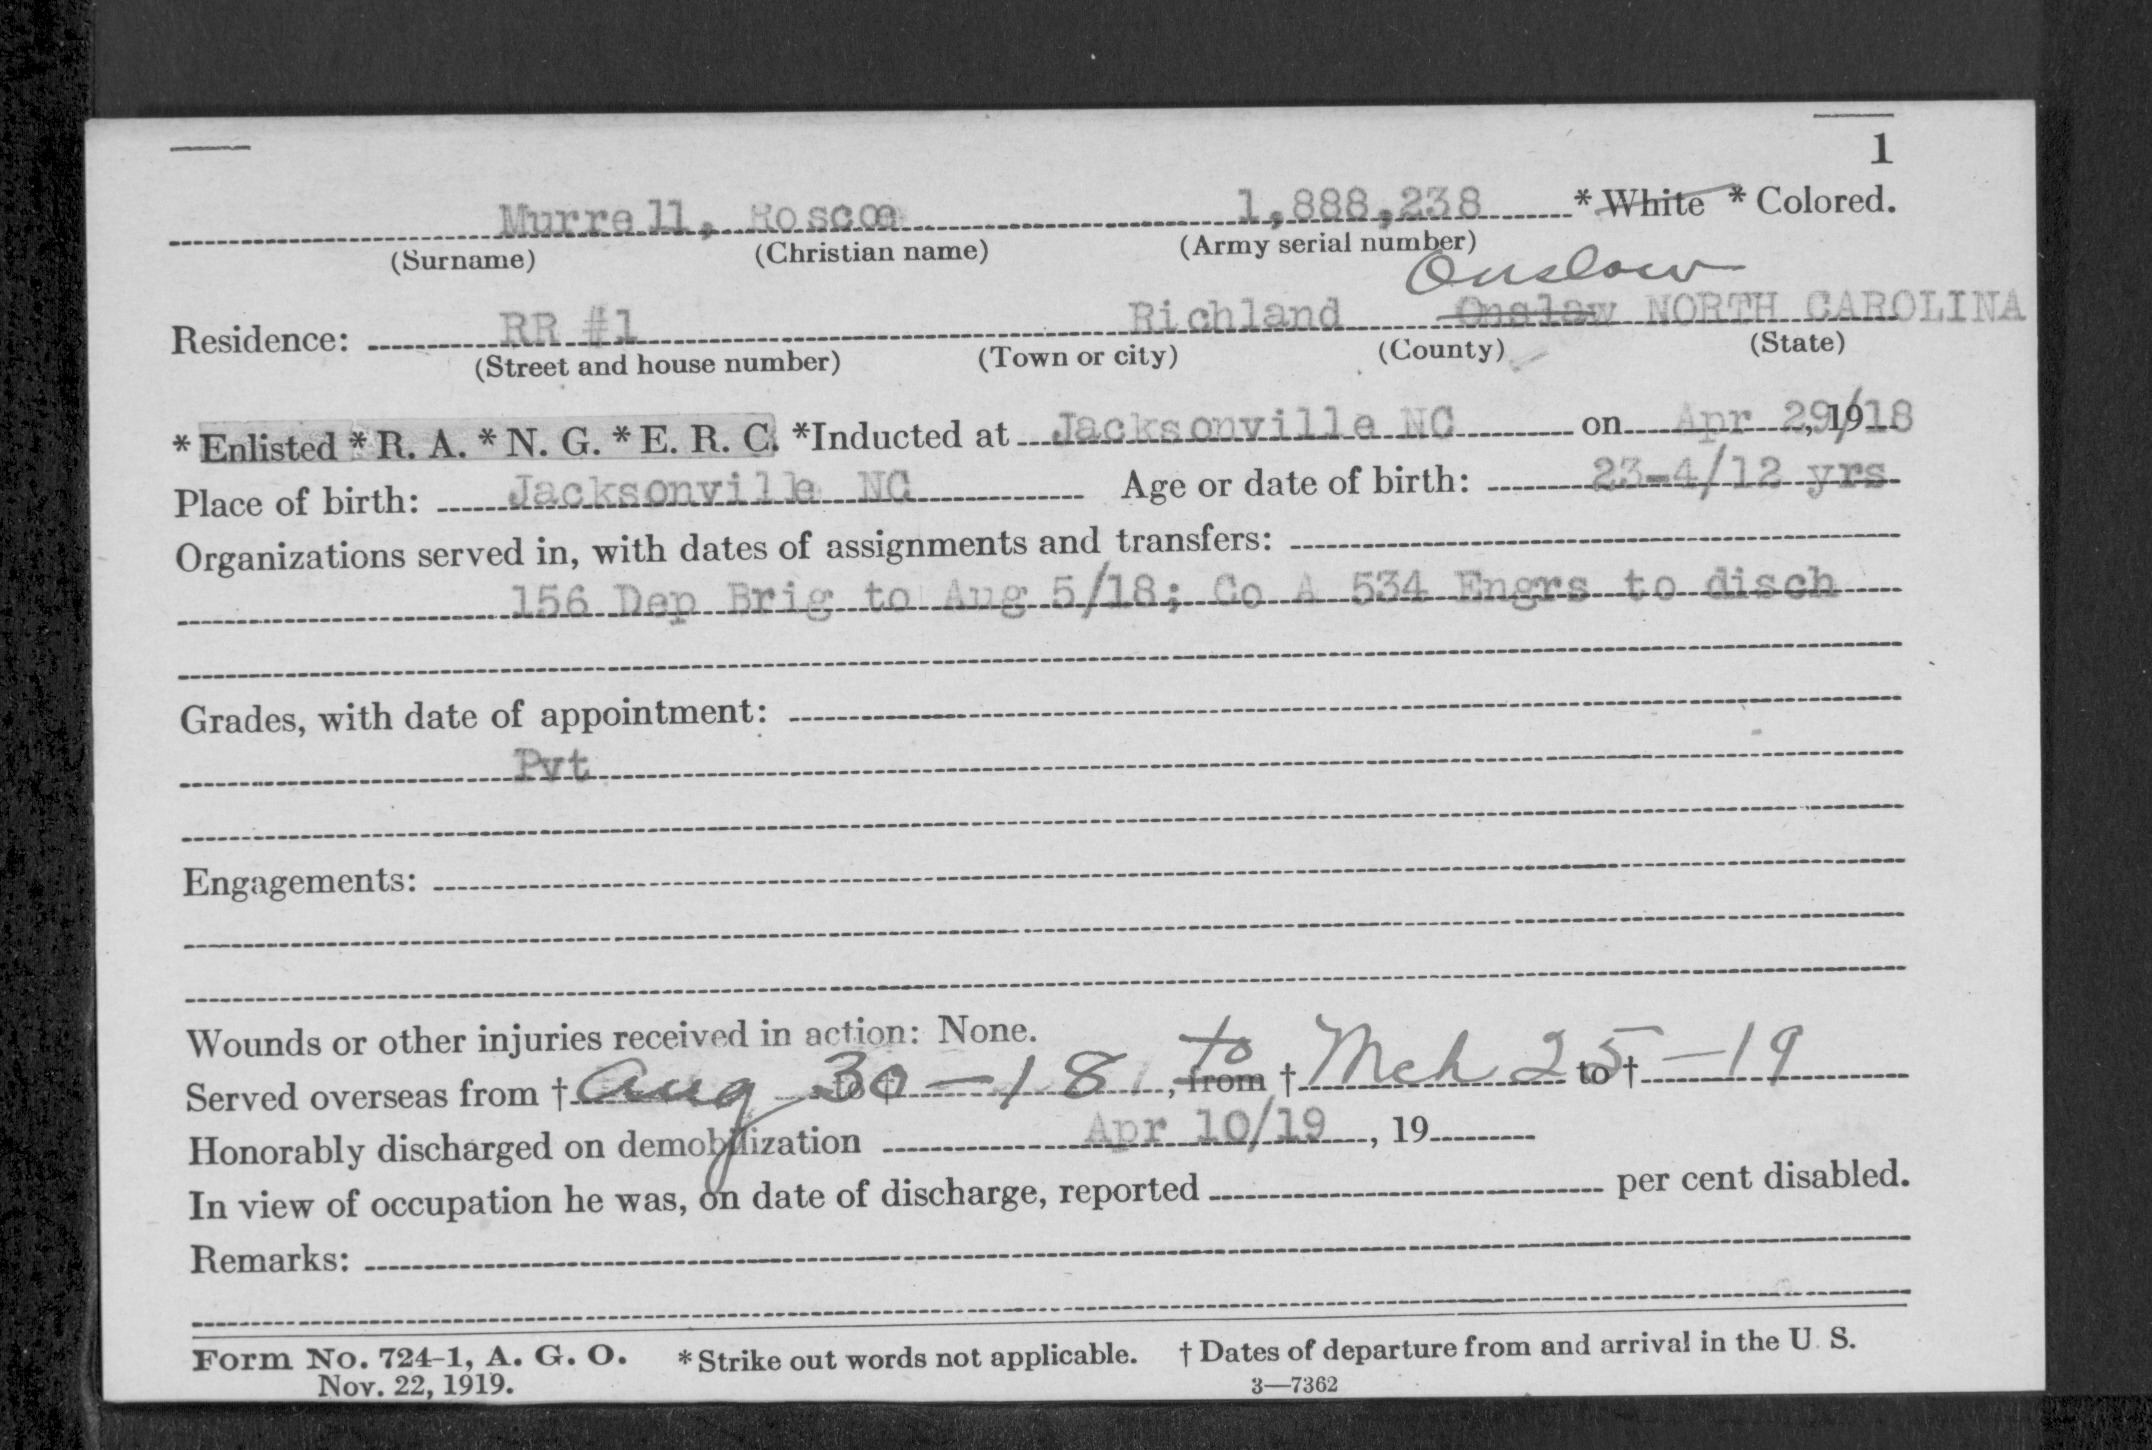 1
Murrell, Roscoe 1,888,238 * White * Colored.
(Surname) (Christian name) (Army serial number)
Onslow
Residence: RR #1 Richland Onslaw NORTH CAROLINA
(Street and house number) (Town or city) (County) (State)
* Enlisted * R. A. * N. G. * E. R. C. *Inducted at Jacksonville NC on Apr 29/18, 19
Place of birth: Jacksonville NC Age or date of birth: 23-4/12 yrs
Organizations served in, with dates of assignments and transfers:
156 Dep Brig to Aug 5/18; Co A 534 Engrs to disch
Grades, with date of appointment:
Pvt
Engagements:
Wounds or other injuries received in action: None.
Served overseas from † Aug 30-18 to †, from to † Mch 25-19 to †
Honorably discharged on demobilization Apr 10/19, 19
In view of occupation he was, on date of discharge, reported per cent disabled.
Remarks:
Form No. 724-1, A. G. O. * Strike out words not applicable. † Dates of departure from and arrival in the U. S.
Nov. 22, 1919. 3—7362